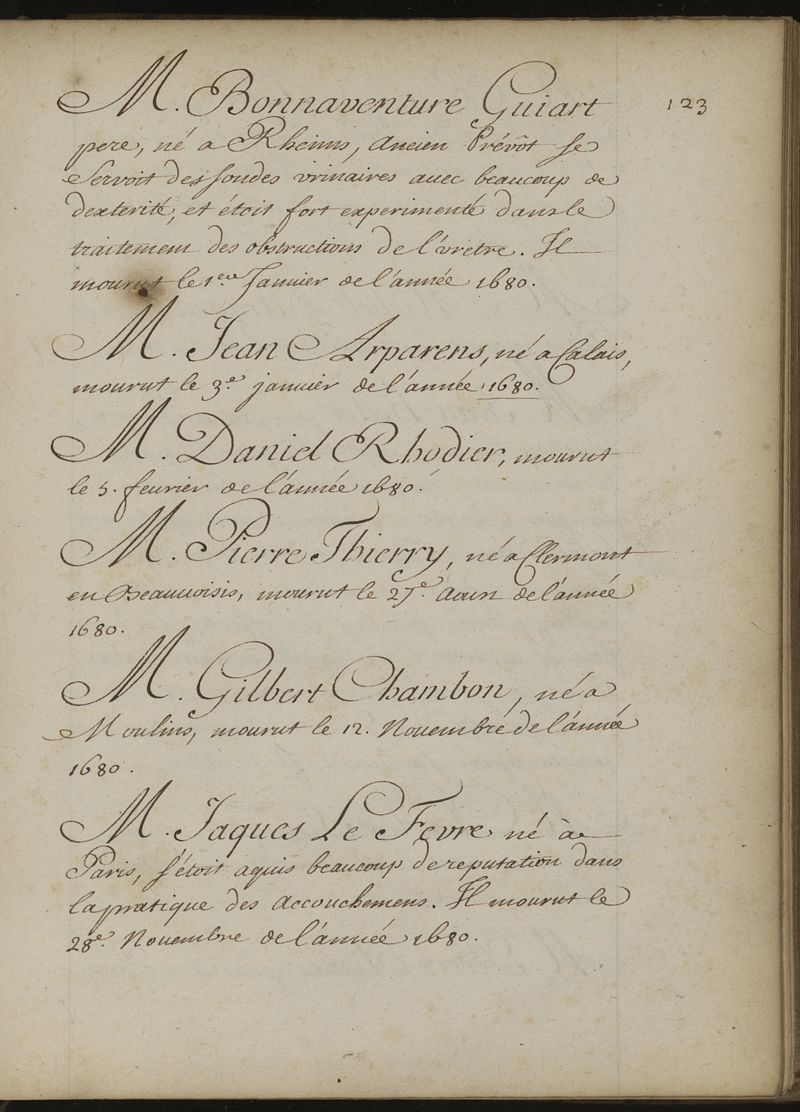 123
M. Bonnaventure Guiart
pere, né a Rheims, Ancien Prévôt se
Servoit des sondes vrinaires auec beaucoup de
dexterité, et étoit fort experimenté dans le
traitement des obstructions de l'vretre. Il
mourut le 1.er Janvier de l'année 1680.
M. Jean Arparens, né a Calais,
mourut le 3.e janvier de l'année 1680.
M. Daniel Rhodier, mourut
le 5. feurier de l'année 1680.
M. Pierre Thierry, né a Clermont
en Beauuoisis, mourut le 27.e de l'année
1680.
M. Gilbert Chambon, né a
Moulins, mourut le 12. Nouembre de l'année
1680.
M. Jaques Le Fevre né à
Paris, s'étoit aquis beaucoup de reputation dans
la pratique des Accouchemens. Il mourut le
28.e Nouembre de l'année 1680.